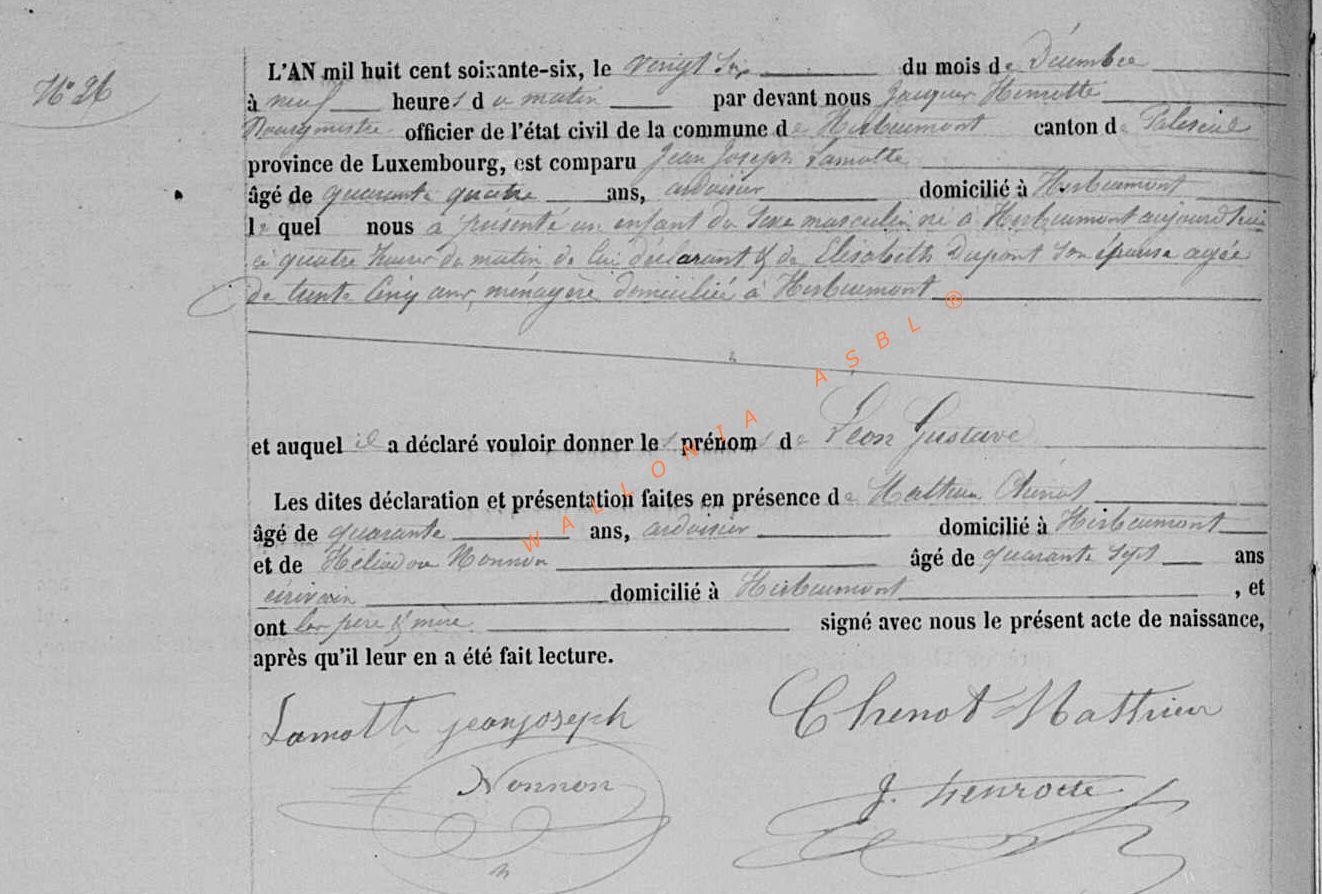 N° 26
L'AN mil huit cent soixante-six, le vingt six du mois de Décembre
à neuf heures du matin par devant nous Jacques Henrotte
Bourgmestre officier de l'état civil de la commune de Herbeumont canton de Paliseul
province de Luxembourg, est comparu Jean Joseph Lamotte
âgé de quarante quatre ans, ardoisier domicilié à Herbeumont
lequel nous a présenté un enfant du sexe masculin né à Herbeumont aujourd'hui
à quatre heures du matin de lui déclarant & de Elisabeth Dupont son épouse agée
de trente cinq ans, ménagère domiciliée à Herbeumont
et auquel il a déclaré vouloir donner les prénoms de Léon Gustave
Les dites déclaration et présentation faites en présence de Mathieu Chenot
âgé de quarante ans, ardoisier domicilié à Herbeumont
et de Héliodore Nonnon âgé de quarante sept ans
écrivain domicilié à Herbeumont, et
ont les père & mère signé avec nous le présent acte de naissance,
après qu'il leur en a été fait lecture.
Lamotte jean joseph Chenot Mathieu
Nonnon J. Henrotte
WALLONIA ASBL ®